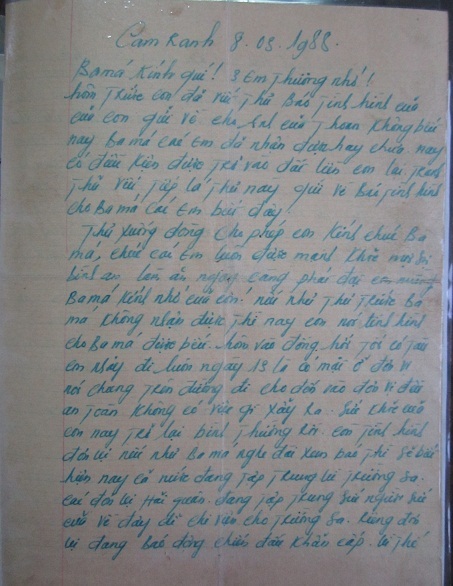 Cam Ranh 8.03.1988.
Ba má kính quí! 3 em thương nhớ!
hôm trước con đã viết thư báo tình hình của
của con gửi về cho anh của Thoan không biết
nay Ba má các em đã nhận được hay chưa. nay
có điều kiện được trở vào đất liền con lại tranh
thủ viết tiếp lá thư nay gửi về báo tình hình
cho Ba má các em biết đây.
Thư xuống dòng cho phép con kính chúc Ba
má, chúc các em luôn được mạnh khỏe mọi sự
bình an làm ăn ngày càng phát đạt
Ba má kính nhớ của con! nói như thư trước Ba
má không nhận được thì nay con nói tình hình
cho Ba má được biết. hôm vào đồng hới tới có tàu
em nhảy đi luôn ngày 13 là có mặt ở đơn vị
nói chung trên đường đi cho đến vào đơn vị đều
an toàn không có việc gì xẩy ra. Sức khỏe của
con nay trở lại bình thường rồi. Còn tình hình
đơn vị nếu như Ba má nghe đài xem báo thì sẽ biết
hiện nay cả nước đang tập trung vì Trường Sa.
các đơn vị Hải quân đang tập trung sức người sức
của về đây để chi viện cho Trường Sa. Riêng đơn
vị đang báo động chiến đấu khẩn cấp. vì thế